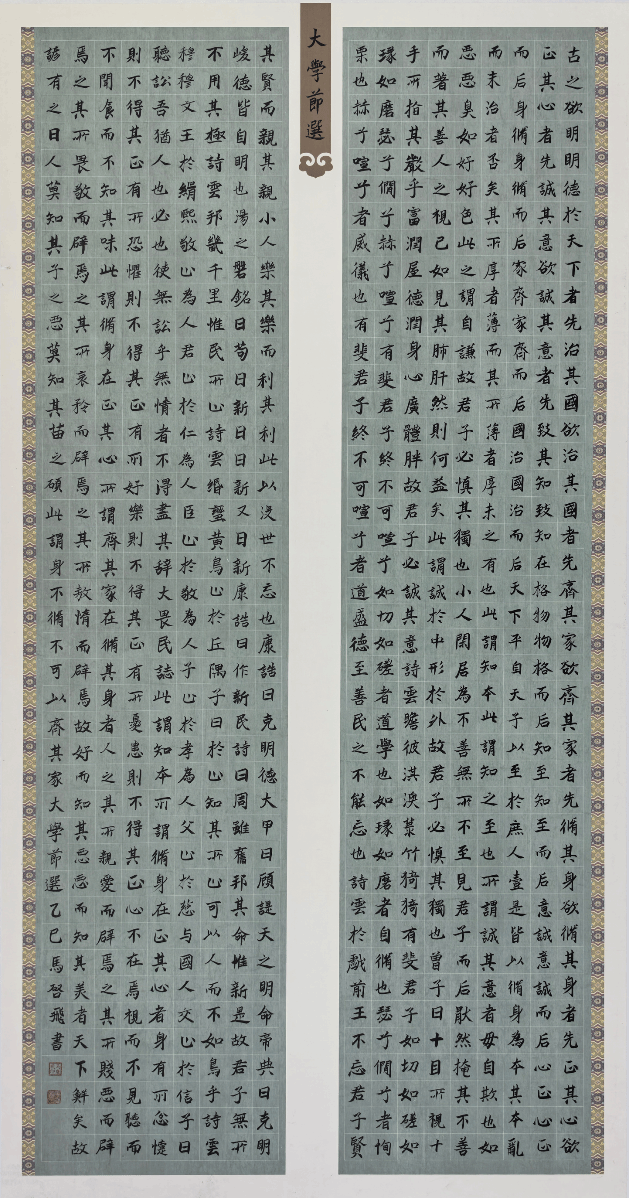 大學節選
古之欲明明德於天下者先治其國欲治其國者先齊其家欲齊其家者先脩其身欲脩其身者先正其心欲
正其心者先誠其意欲誠其意者先致其知致知在格物物格而后知至知至而后意誠意誠而后心正心正
而后身脩身脩而后家齊家齊而后國治國治而后天下平自天子以至於庶人壹是皆以脩身為本其本亂
而末治者否矣其所厚者薄而其所薄者厚未之有也此謂知本此謂知之至也所謂誠其意者毋自欺也如
惡惡臭如好好色此之謂自謙故君子必慎其獨也小人閑居為不善無所不至見君子而后厭然掩其不善
而著其善人之視己如見其肺肝然則何益矣此謂誠於中形於外故君子必慎其獨也曾子曰十目所視十
手所指其嚴乎富潤屋德潤身心廣體胖故君子必誠其意詩雲瞻彼淇澳菉竹猗猗有斐君子如切如磋如
琢如磨瑟兮僩兮赫兮喧兮有斐君子終不可喧兮如切如磋者道學也如琢如磨者自脩也瑟兮僩兮者恂
栗也赫兮喧兮者威儀也有斐君子終不可喧兮者道盛德至善民之不能忘也詩雲於戲前王不忘君子賢
其賢而親其親小人樂其樂而利其利此以沒世不忘也康誥曰克明德大甲曰顧諟天之明命帝典曰克明
峻德皆自明也湯之盤銘曰苟日新日日新又日新康誥曰作新民詩曰周雖舊邦其命惟新是故君子無所
不用其極詩雲邦畿千里惟民所止詩雲緡蠻黃鳥止於丘隅子曰於止知其所止可以人而不如鳥乎詩雲
穆穆文王於緝熙敬止為人君止於仁為人臣止於敬為人子止於孝為人父止於慈与國人交止於信子曰
聽訟吾猶人也必也使無訟乎無情者不得盡其辭大畏民誌此謂知本所謂脩身在正其心者身有所忿懥
則不得其正有所恐懼則不得其正有所好樂則不得其正有所憂患則不得其正心不在焉視而不見聽而
不聞食而不知其味此謂脩身在正其心所謂齊其家在脩其身者人之其所親愛而辟焉之其所賤惡而辟
焉之其所畏敬而辟焉之其所哀矜而辟焉之其所敖惰而辟焉故好而知其惡惡而知其美者天下鮮矣故
諺有之曰人莫知其子之惡莫知其苗之碩此謂身不脩不可以齊其家大學節選乙巳馬啓飛書